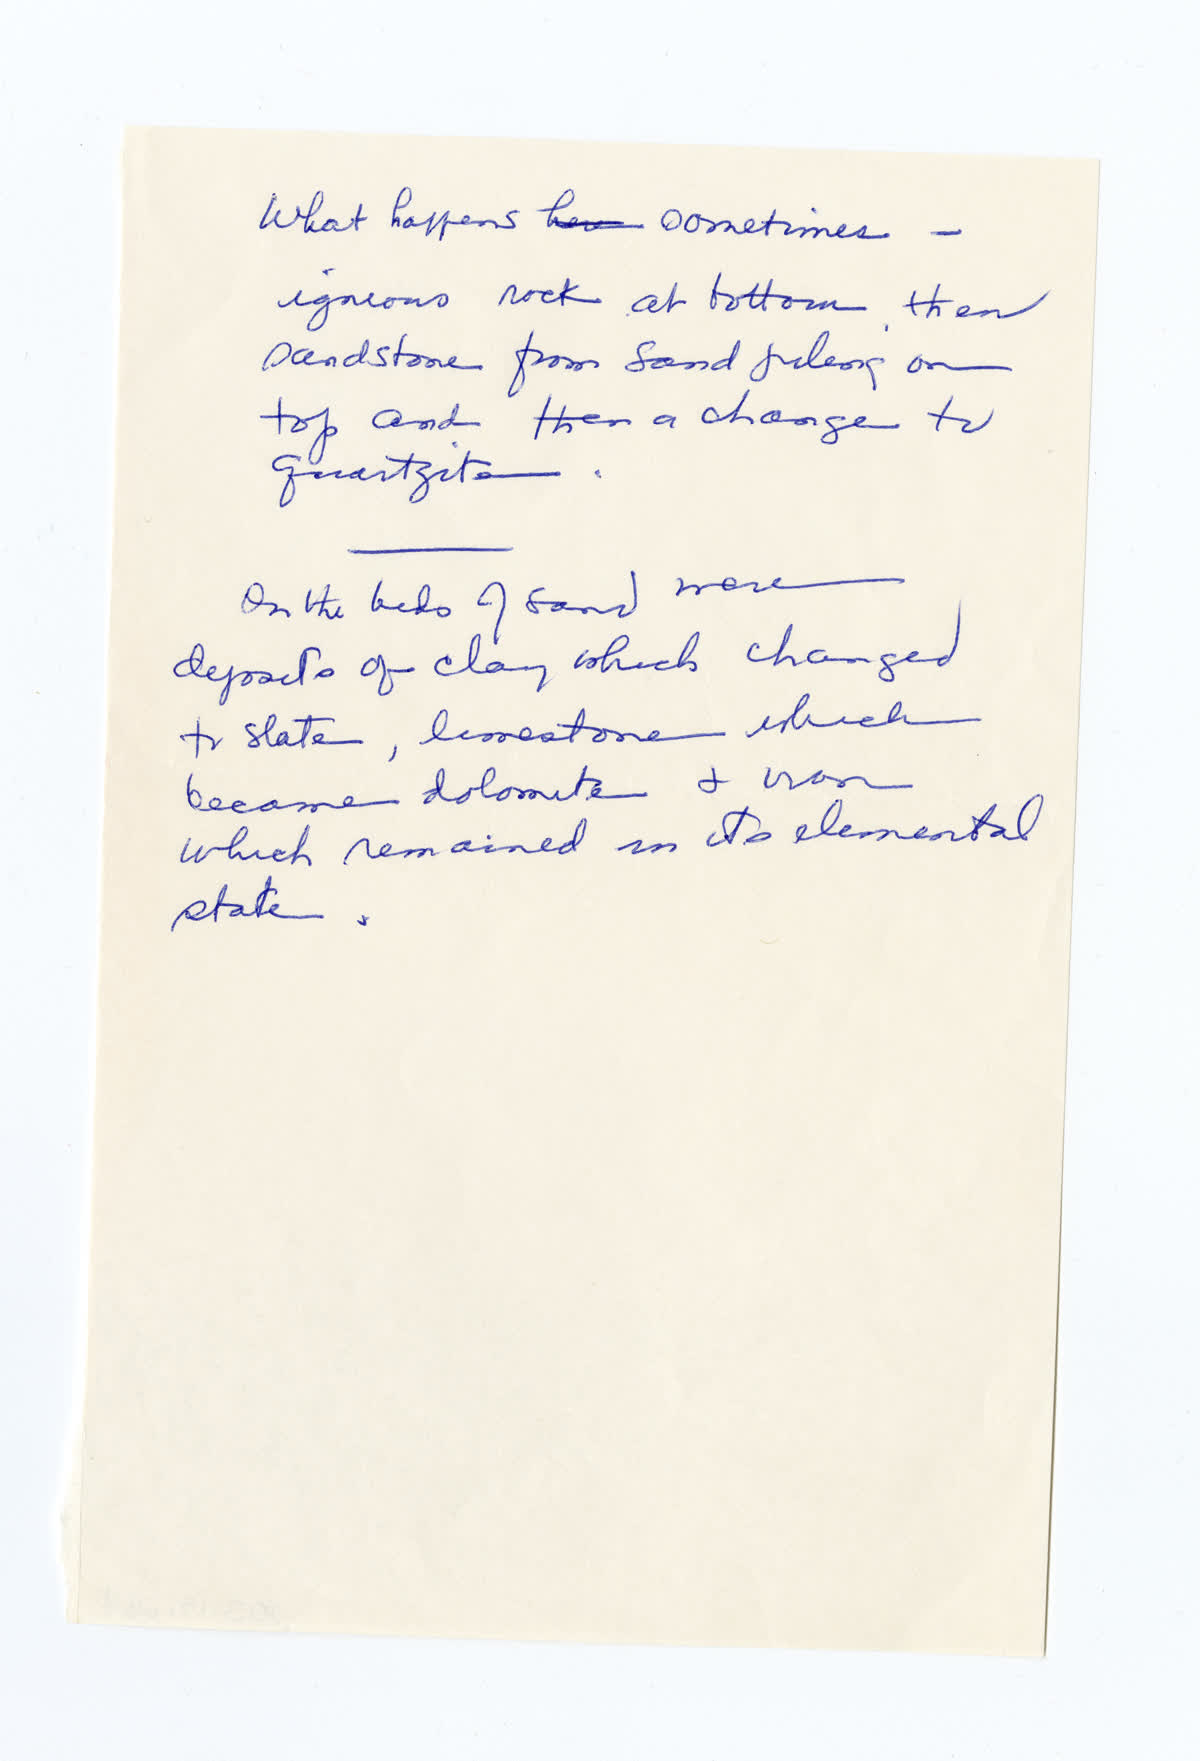 What happens her sometimes -
igneous rock at bottom, then
sandstone from sand piling on
top and then a change to
quartzite.
On the beds of sand were
deposits of clay which changed
to slate, limestone which
became dolomite & iron
which remained in its elemental
state.